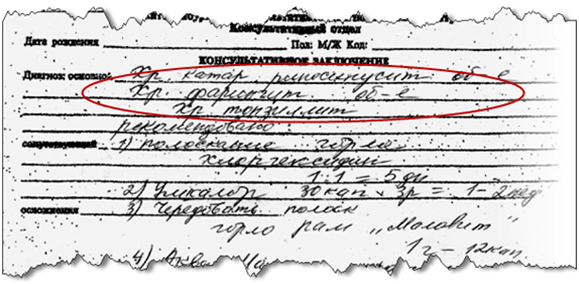 Консультативный отдел
Дата рождения Пол: М/Ж Код:
КОНСУЛЬТАТИВНОЕ ЗАКЛЮЧЕНИЕ
Диагноз: основной: Хр. катар риносинусит об-е
Хр. фарингит об-е
Хр тонзиллит
рекомендовано:
сопутствующий 1) полоскание горла
Хлоргексидин
1:1 = 5 дн
2) 30 кап х 3р = 1-2 нед
осложнения 3) Чередовать полоск
горло "Маловит"
1 г – 12 кап.
4)